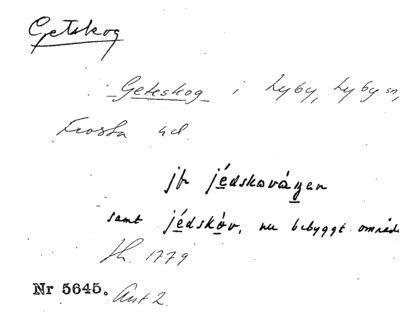 Getskog
Geteskog i Lyby, Lyby sn,
Frosta hd.
jfr jédskovávgen
samt jédskóv, nu bebyggt område
Sk. 1779
Nr 5645. Ant 2